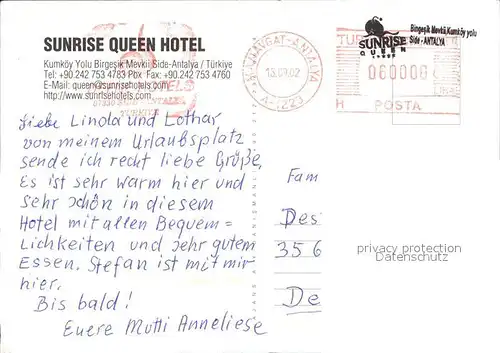 SUNRISE QUEEN HOTEL
Kumköy Yolu Birgeşik Mevkii Side-Antalya / Türkiye
Tel: +90.242 753 4783 Pbx Fax: +90.242 753 4760
E-Mail: queen@sunrisehotels.com
http://www.sunrisehotels.com
MANAVGAT-ANTALYA
13.09.02
A-1223
SUNRISE
QUEEN
Birgeşik Mevkii Kumköy yolu
Side - ANTALYA
060000
POSTA
Liebe Linda und Lothar
von meinem Urlaubsplatz
sende ich recht liebe Grüße,
Es ist sehr warm hier und
sehr schön in diesem
Hotel mit allen Bequem=
lichkeiten und sehr gutem
Essen. Stefan ist mit mir
hier.
Bis bald!
Euere Mutti Anneliese
Fam
Des
356
De
privacy protection
Datenschutz